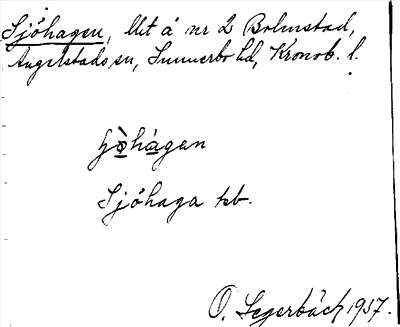 Sjöhagen, lht å nr 2 Bolmstad,
Angelstads sn, Sunnerbo hd, Kronob. l.
hágen
Sjöhaga kb.
O. Segerbäck 1937.